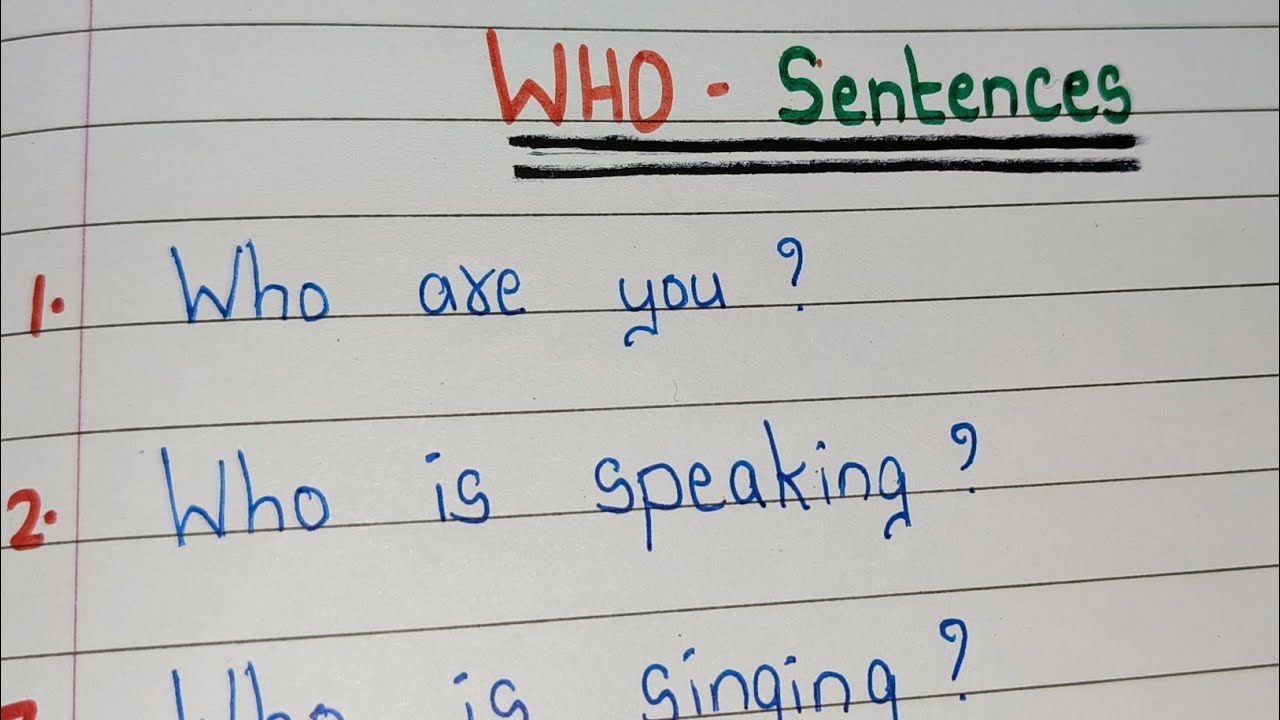 WHO - Sentences
1. Who are you?
2. Who is speaking?
Who is singing?